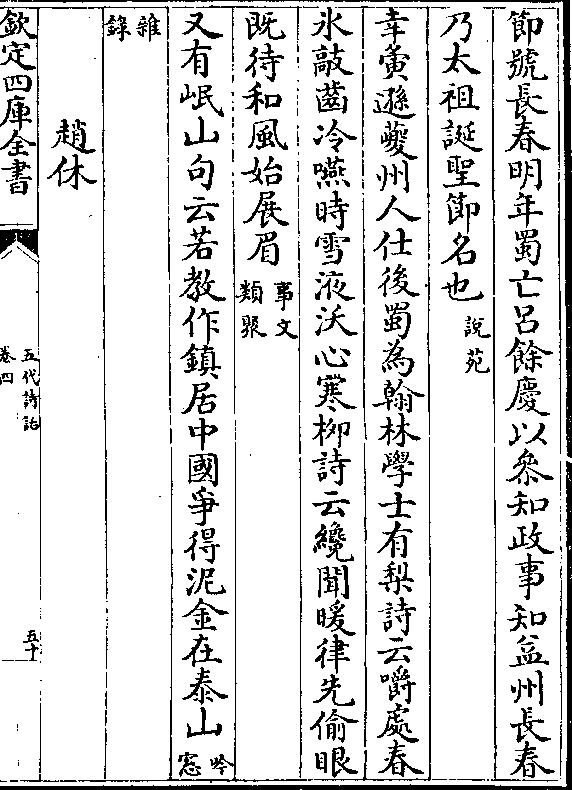 節號長春明年蜀亡呂餘慶以叅知政事知益州長春
乃太祖誕聖節名也說苑
幸夤遜夔州人仕後蜀為翰林學士有梨詩云嚼處春
氷敲齒冷嚥時雪液沃心寒柳詩云纔聞暖律先偷眼
既待和風始展眉事文類聚
又有岷山句云若教作鎮居中國爭得泥金在泰山吟窓
雜錄
趙休
欽定四庫全書
五代詩話
卷四
五十